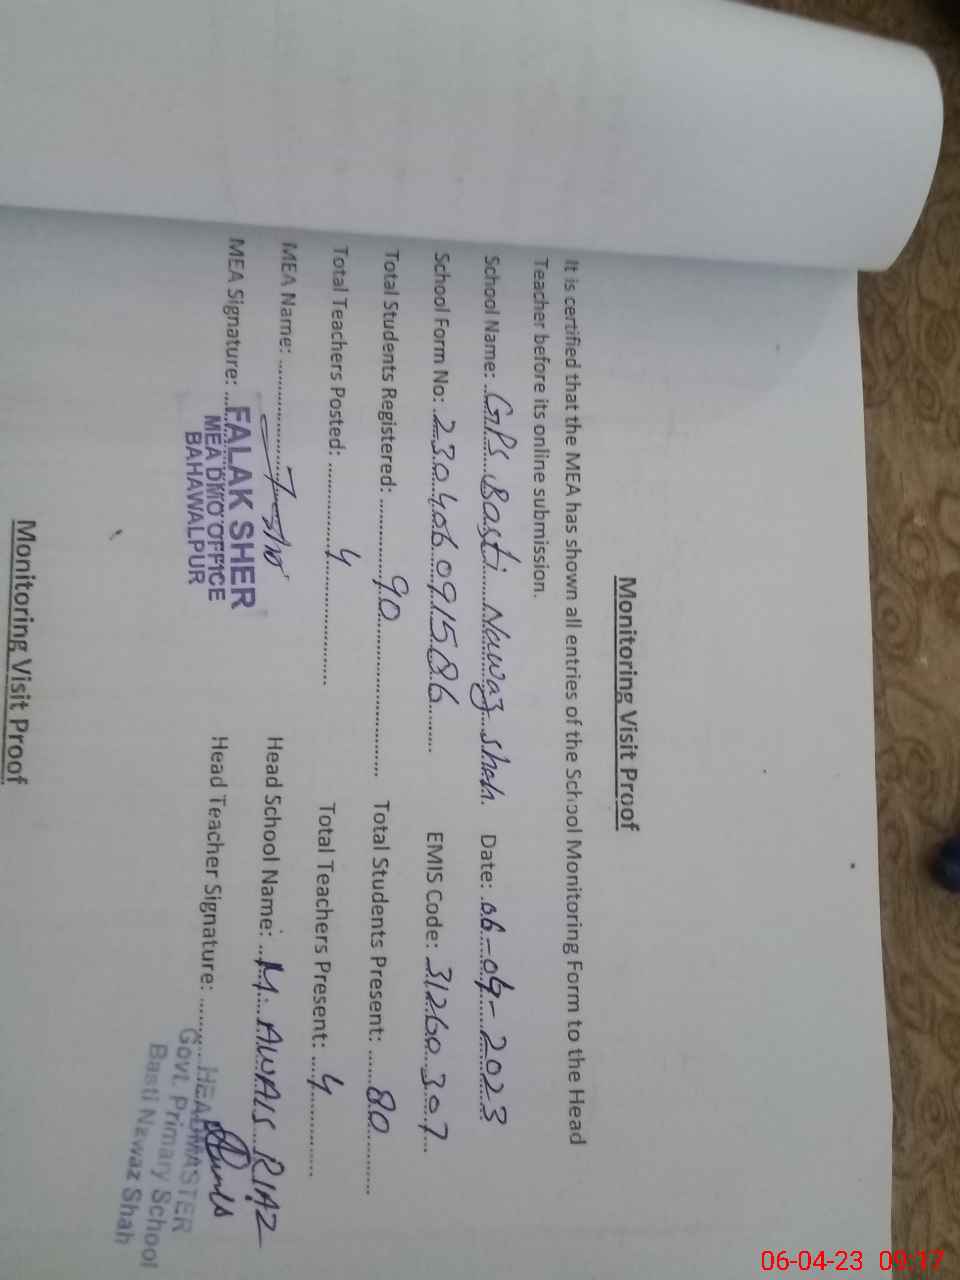 Monitoring Visit Proof
It is certified that the MEA has shown all entries of the School Monitoring Form to the Head
Teacher before its online submission.
School Name: GPS Basti Nawaz Shah. Date: 06-04-2023
School Form No: 230406091586 EMIS Code: 31260307
Total Students Registered: 90 Total Students Present: 80
Total Teachers Posted: 4 Total Teachers Present: 4
MEA Name: Head School Name: M. AWAIS RIAZ
MEA Signature: Head Teacher Signature:
FALAK SHER
MEA DMO OFFICE
BAHAWALPUR
HEADMASTER
Govt. Primary School
Basti Nawaz Shah
Monitoring Visit Proof
06-04-23 09:17